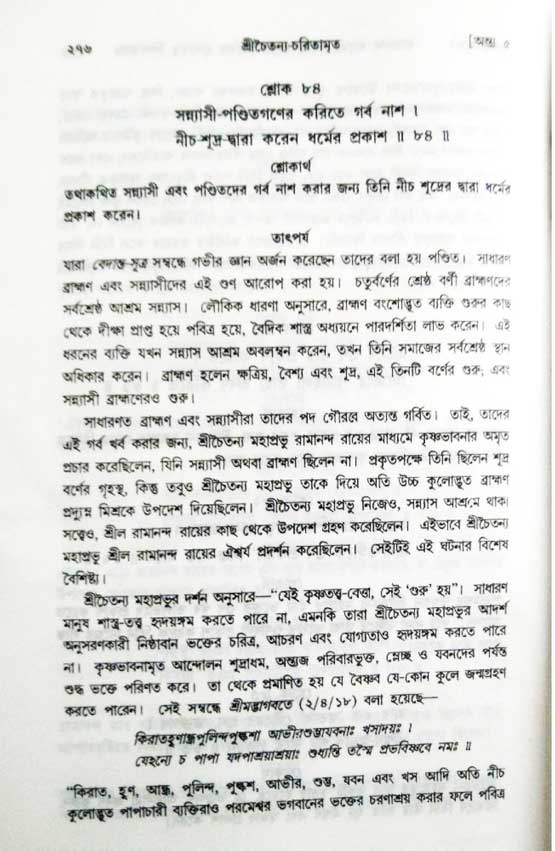 ২৭৬
শ্রীচৈতন্য-চরিতামৃত
[অন্ত্য ৫
শ্লোক ৮৪
সন্ন্যাসী-পণ্ডিতগণের করিতে গর্ব নাশ ।
নীচ-শূদ্র-দ্বারা করেন ধর্মের প্রকাশ ॥ ৮৪ ॥
শ্লোকার্থ
তথাকথিত সন্ন্যাসী এবং পণ্ডিতদের গর্ব নাশ করার জন্য তিনি নীচ শূদ্রের দ্বারা ধর্মের
প্রকাশ করেন।
তাৎপর্য
যারা বেদান্ত-সূত্র সম্বন্ধে গভীর জ্ঞান অর্জন করেছেন তাদের বলা হয় পণ্ডিত। সাধারণ
ব্রাহ্মণ এবং সন্ন্যাসীদের এই গুণ আরোপ করা হয়। চতুর্বর্ণের শ্রেষ্ঠ বর্ণী ব্রাহ্মণদের
সর্বশ্রেষ্ঠ আশ্রম সন্ন্যাস। লৌকিক ধারণা অনুসারে, ব্রাহ্মণ বংশোদ্ভূত ব্যক্তি গুরুর কাছ
থেকে দীক্ষা প্রাপ্ত হয়ে পবিত্র হয়ে, বৈদিক শাস্ত্র অধ্যয়নে পারদর্শিতা লাভ করেন। এই
ধরনের ব্যক্তি যখন সন্ন্যাস আশ্রম অবলম্বন করেন, তখন তিনি সমাজের সর্বশ্রেষ্ঠ স্থান
অধিকার করেন। ব্রাহ্মণ হলেন ক্ষত্রিয়, বৈশ্য এবং শূদ্র, এই তিনটি বর্ণের গুরু; এবং
সন্ন্যাসী ব্রাহ্মণেরও গুরু।
সাধারণত ব্রাহ্মণ এবং সন্ন্যাসীরা তাদের পদ গৌরবে অত্যন্ত গর্বিত। তাই, তাদের
এই গর্ব খর্ব করার জন্য, শ্রীচৈতন্য মহাপ্রভু রামানন্দ রায়ের মাধ্যমে কৃষ্ণভাবনার অমৃত
প্রচার করেছিলেন, যিনি সন্ন্যাসী অথবা ব্রাহ্মণ ছিলেন না। প্রকৃতপক্ষে তিনি ছিলেন শূদ্র
বর্ণের গৃহস্থ, কিন্তু তবুও শ্রীচৈতন্য মহাপ্রভু তাকে দিয়ে অতি উচ্চ কুলোদ্ভূত ব্রাহ্মণ
প্রদ্যুম্ন মিশ্রকে উপদেশ দিয়েছিলেন। শ্রীচৈতন্য মহাপ্রভু নিজেও, সন্ন্যাস আশ্রমে থাকা
সত্ত্বেও, শ্রীল রামানন্দ রায়ের কাছ থেকে উপদেশ গ্রহণ করেছিলেন। এইভাবে শ্রীচৈতন্য
মহাপ্রভু শ্রীল রামানন্দ রায়ের ঐশ্বর্য প্রদর্শন করেছিলেন। সেইটিই এই ঘটনার বিশেষ
বৈশিষ্ট্য।
শ্রীচৈতন্য মহাপ্রভুর দর্শন অনুসারে—“যেই কৃষ্ণতত্ত্ব-বেত্তা, সেই ‘গুরু’ হয়”। সাধারণ
মানুষ শাস্ত্র-তত্ত্ব হৃদয়ঙ্গম করতে পারে না, এমনকি তারা শ্রীচৈতন্য মহাপ্রভুর আদর্শ
অনুসরণকারী নিষ্ঠাবান ভক্তের চরিত্র, আচরণ এবং যোগ্যতাও হৃদয়ঙ্গম করতে পারে
না। কৃষ্ণভাবনামৃত আন্দোলন শূদ্রাধম, অন্ত্যজ পরিবারভুক্ত, ম্লেচ্ছ ও যবনদের পর্যন্ত
শুদ্ধ ভক্তে পরিণত করে। তা থেকে প্রমাণিত হয় যে বৈষ্ণব যে-কোন কুলে জন্মগ্রহণ
করতে পারেন। সেই সম্বন্ধে শ্রীমদ্ভাগবতে (২/৪/১৮) বলা হয়েছে—
কিরাতহূণান্ধ্রপুলিন্দপুল্কশা আভীরশুম্ভাযবনাঃ খসাদয়ঃ ।
যেহন্যে চ পাপা যদপাশ্রয়াশ্রয়াঃ শুধ্যন্তি তস্মৈ প্রভবিষ্ণবে নমঃ ॥
“কিরাত, হূণ, আন্ধ্র, পুলিন্দ, পুল্কশ, আভীর, শুম্ভ, যবন এবং খস আদি অতি নীচ
কুলোদ্ভূত পাপাচারী ব্যক্তিরাও পরমেশ্বর ভগবানের ভক্তের চরণাশ্রয় করার ফলে পবিত্র